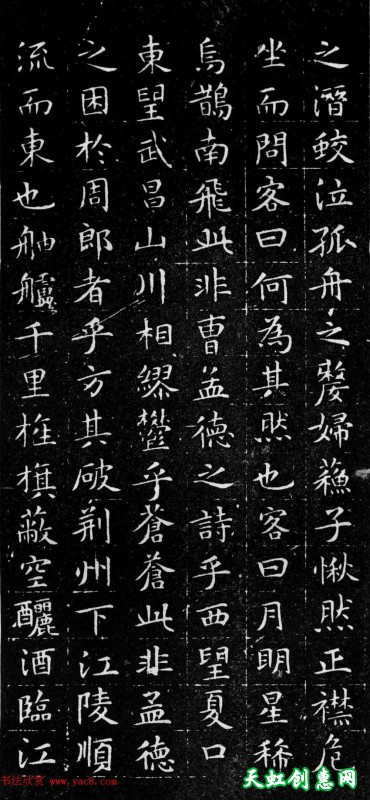 之潛蛟泣孤舟之嫠婦蘓子愀然正襟危
坐而問客曰何為其然也客曰月明星稀
烏鵲南飛此非曹孟德之詩乎西望夏口
東望武昌山川相繆鬱乎蒼蒼此非孟德
之困於周郎者乎方其破荆州下江陵順
流而東也舳艫千里旌旗蔽空釃酒臨江
书法欣赏 www.yac8.com
天虹创惠网